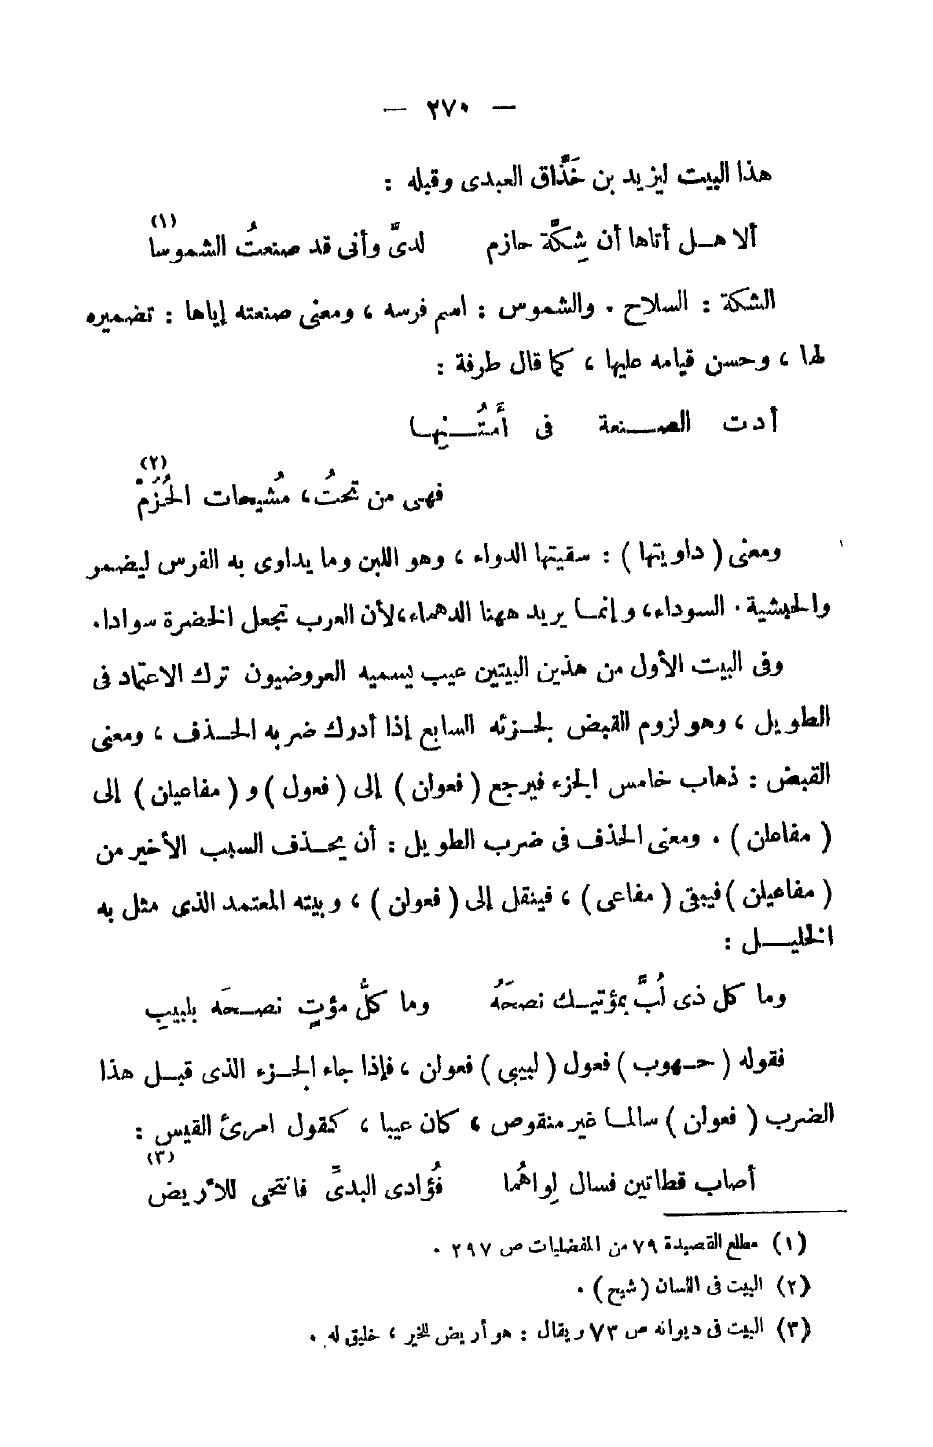 — ٢٧٠ —
هذا البيت ليزيد بن خَذَّاق العبدى وقبله :
ألا هــل أتاها أن شِكَّة حازم لدىَّ وأنى قد صنعتُ الشموسا (١)
الشكة : السلاح . والشموس : اسم فرسه ، ومعنى صنعته إياها : تضميره
لها ، وحسن قيامه عليها ، كما قال طرفة :
أدت الصــنعة فى أَمتُــنِها
فهى من تحتُ، مُشيحات الحُزُمْ (٢)
ومعنى ( داويتها ) : سقيتها الدواء ، وهو اللبن وما يداوى به الفرس ليضمر
والحبشية . السوداء، وإنمـا يريد ههنا الدهماء،لأن العرب تجعل الخضرة سوادا.
وفى البيت الأول من هذين البيتين عيب يسميه العروضيون ترك الاعتماد فى
الطويل ، وهو لزوم القبض لجزئه السابع إذا أدرك ضربه الحـذف ، ومعنى
القبض : ذهاب خامس الجزء فيرجع ( فعولن ) إلى ( فعول ) و ( مفاعيلن ) إلى
( مفاعلن ) . ومعنى الحذف فى ضرب الطويل : أن يحـذف السبب الأخير من
( مفاعيلن ) فيبقى ( مفاعى ) ، فينقل إلى ( فعولن ) ، وبيته المعتمد الذى مثل به
الخليــل :
وما كل ذى لُبَّ بمؤتيـك نصحَهُ وما كلُّ مؤتٍ نصـحَه بلبيبِ
فقوله ( حـهوب ) فعول ( لبيبى ) فعولن ، فإذا جاء الجـزء الذى قبـل هذا
الضرب ( فعولن ) سالمـا غير منقوص ، كان عيبا ، كقول امرئ القيس :
أصاب قطاتين فسال لِواهُما فُؤادى البدىِّ فانتحى للأريض (٣)
(١) مطلع القصيدة ٧٩ من المفضليات ص ٢٩٧ .
(٢) البيت فى اللسان (شيح) .
(٣) البيت فى ديوانه ص ٧٣ ويقال : هو أريض للخير ، خليق له .